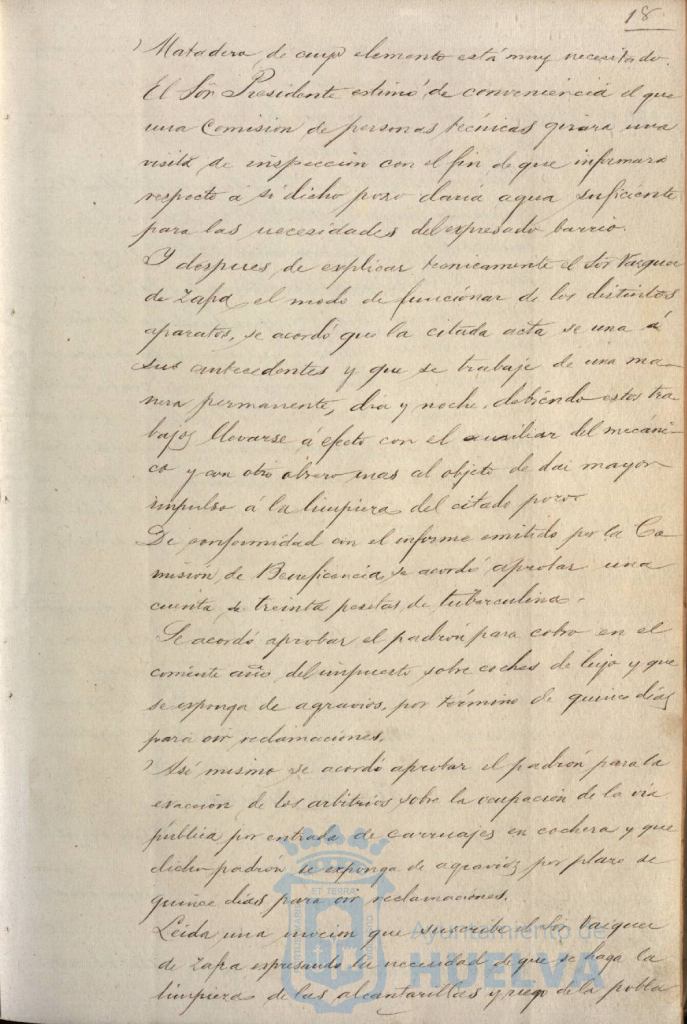 18
Matadero, de cuyo elemento está muy necesitado.
El Sor. Presidente estimó de conveniencia el que
una Comisión de personas técnicas girara una
visita de inspección con el fin de que informara
respecto á si dicho pozo daría agua suficiente
para las necesidades del expresado barrio.
Y despues de explicar tecnicamente el Sor Vazquez
de Zafra el modo de funcionar de los distintos
aparatos, se acordó que la citada acta se una á
sus antecedentes y que se trabaje de una ma-
nera permanente, dia y noche, debiendo estos tra-
bajos llevarse á efecto con el auxiliar del mecáni-
co y con otro obrero mas al objeto de dar mayor
impulso á la limpieza del citado pozo.
De conformidad con el informe emitido por la Co-
misión de Beneficencia se acordó aprobar una
cuenta de treinta pesetas, de tuberculina.
Se acordó aprobar el padrón para cobro en el
corriente año, del impuesto sobre coches de lujo y que
se exponga de agravios, por término de quince días
para oir reclamaciones.
Asi mismo se acordó aprobar el padrón para la
exacción de los arbitrios sobre la ocupación de la via
pública por entrada de carruajes en cochera y que
dicho padrón se exponga de agravios por plazo de
quince días para oir reclamaciones.
Leida una moción que suscribe el Sor Vazquez
de Zafra expresando la necesidad de que se haga la
limpieza de las alcantarillas y riego de la pobla
ET TERRAE
Ayuntamiento de
HUELVA